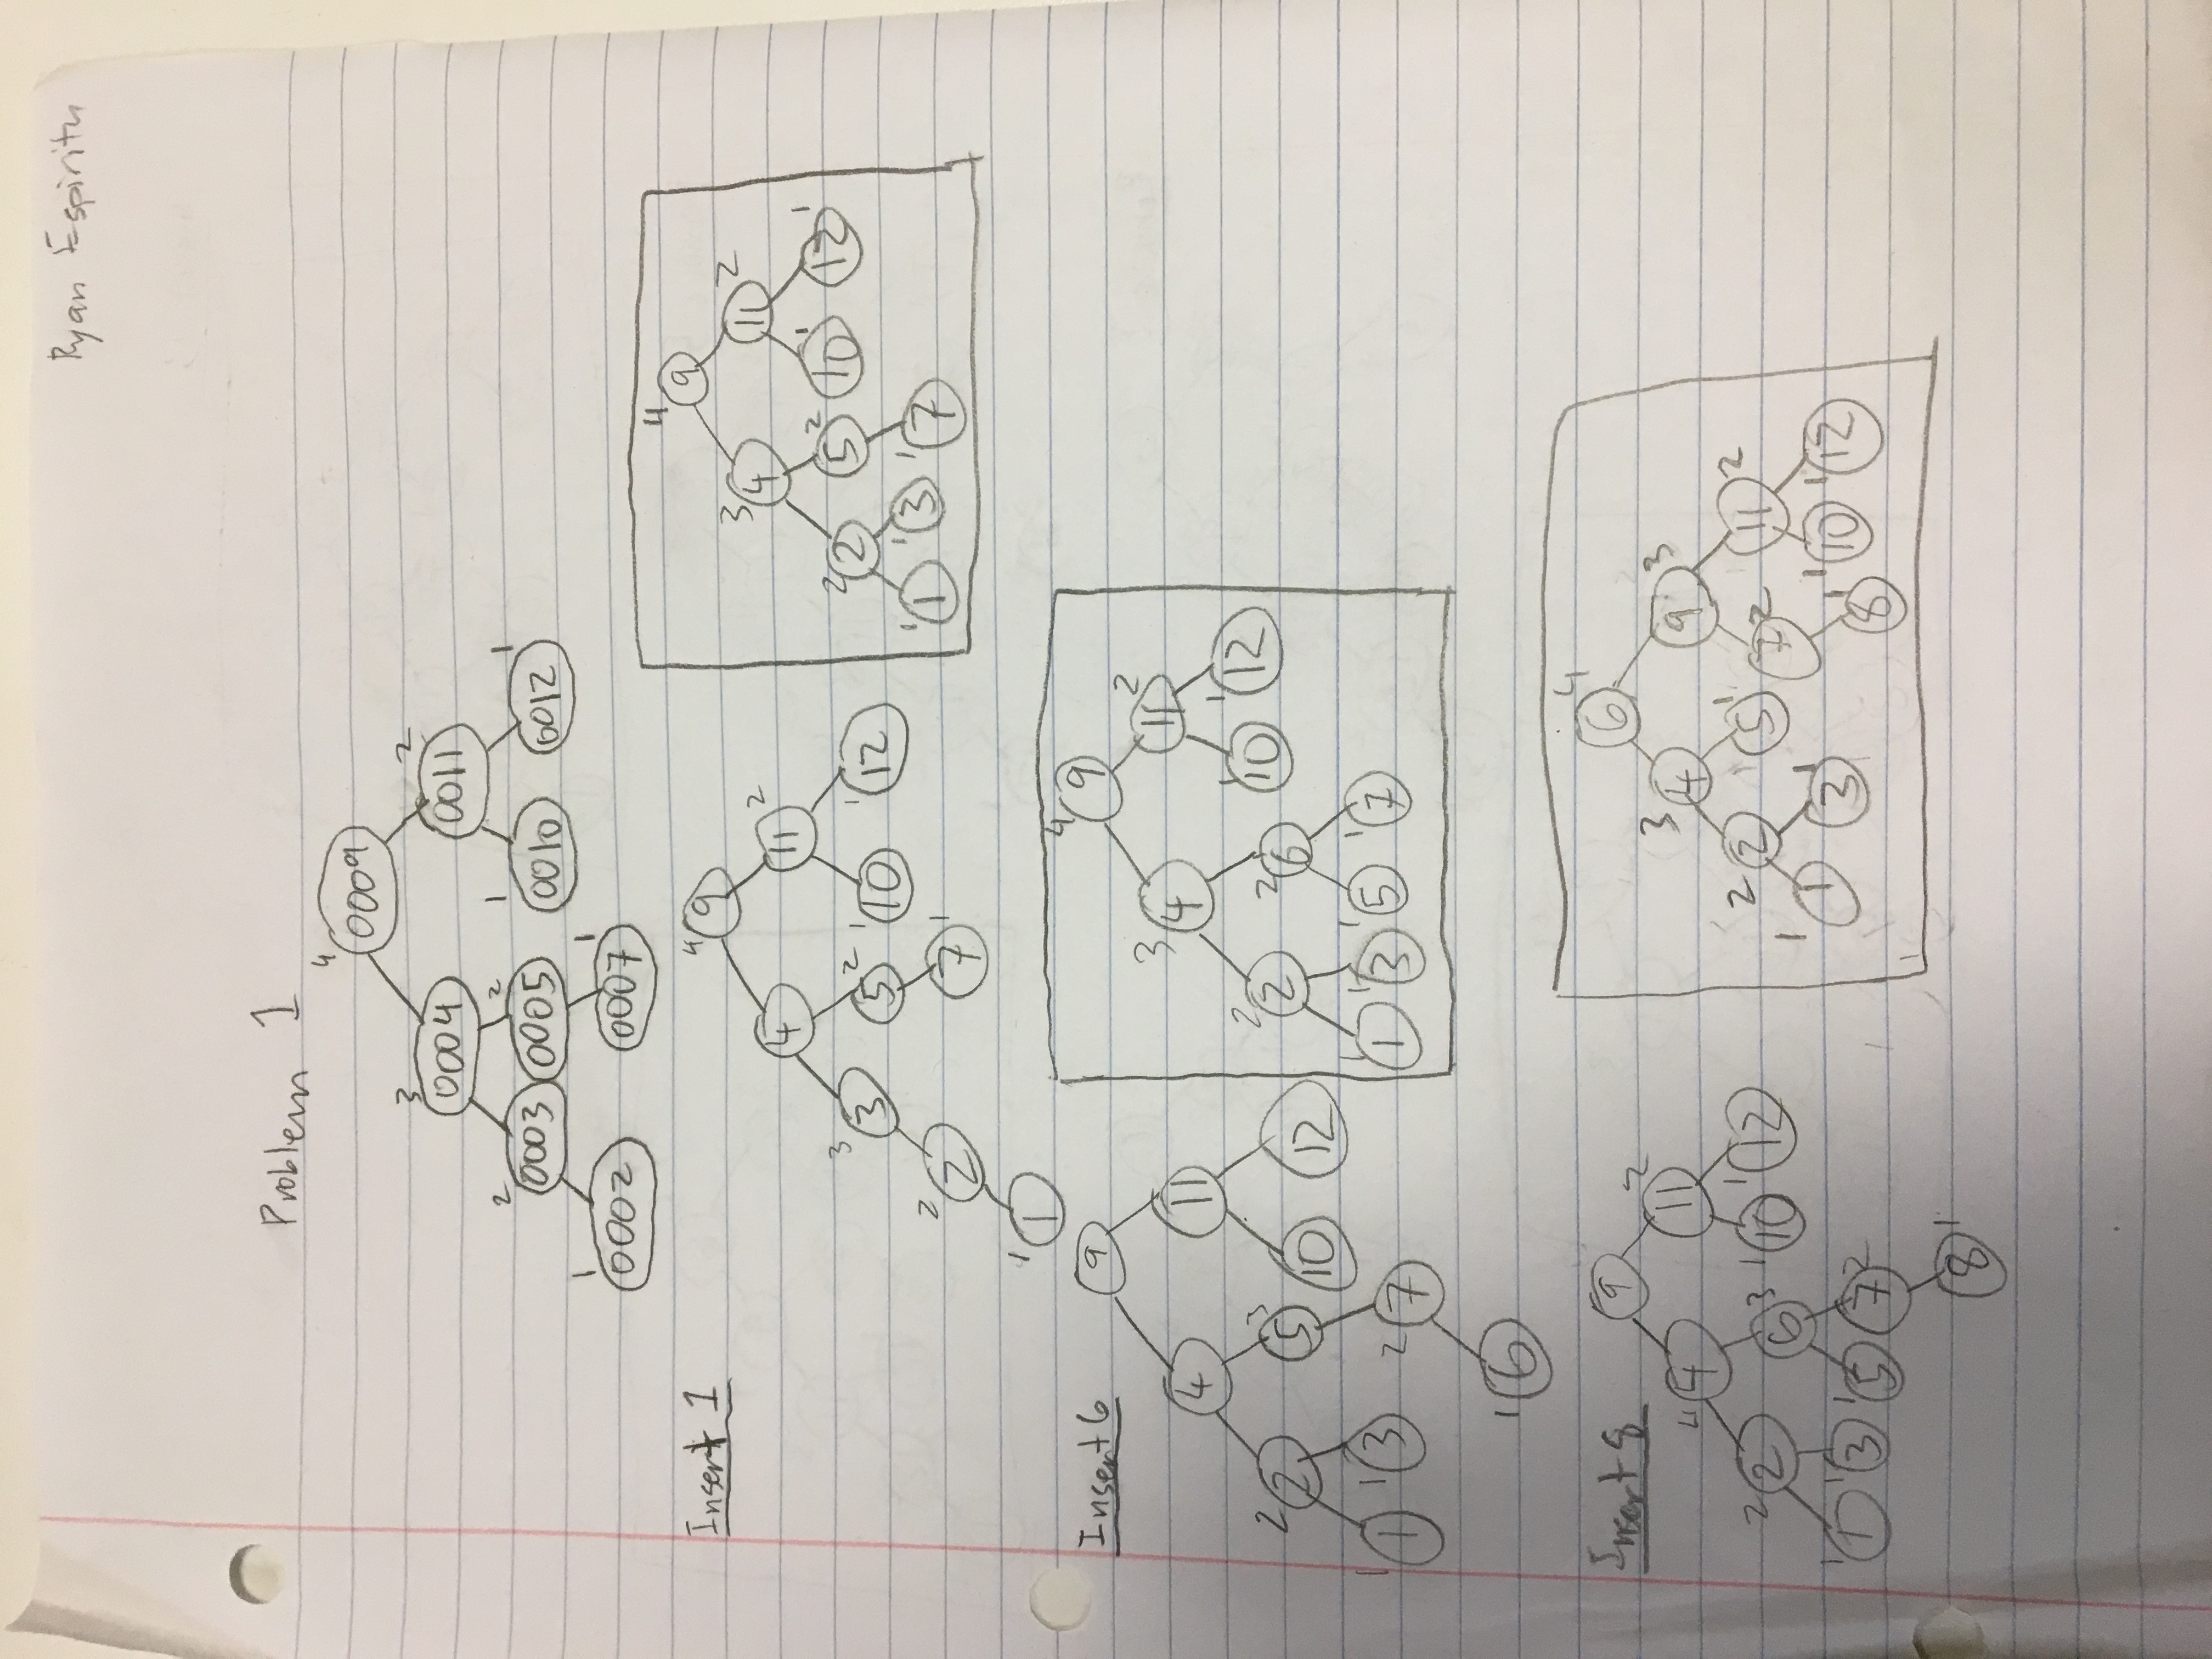 Ryan Espiritu
Problem 1
4
0009
3 2
0004 0011
2 2 1 1
0003 0005 0010 0012
1 1
0002 0007
Insert 1
4 9
4 11 2
3 3 5 2 1 10 1 12
2 2 7 1
1 1
4 9
3 4 11 2
2 2 5 2 10 1 12 1
1 1 1 3 1 7
Insert 6
9
4 11
2 2 5 3 10 12
1 1 1 3 2 7
1 6
4 9
3 4 11 2
2 2 2 6 1 10 1 12
1 1 1 3 1 5 1 7
Insert 8
9
4 4 11 2
2 2 6 3 1 10 1 12
1 1 1 3 1 5 7 2
8 1
6 4
3 4 9 3
2 2 5 1 7 2 11 2
1 1 3 1 8 1 1 10 1 12